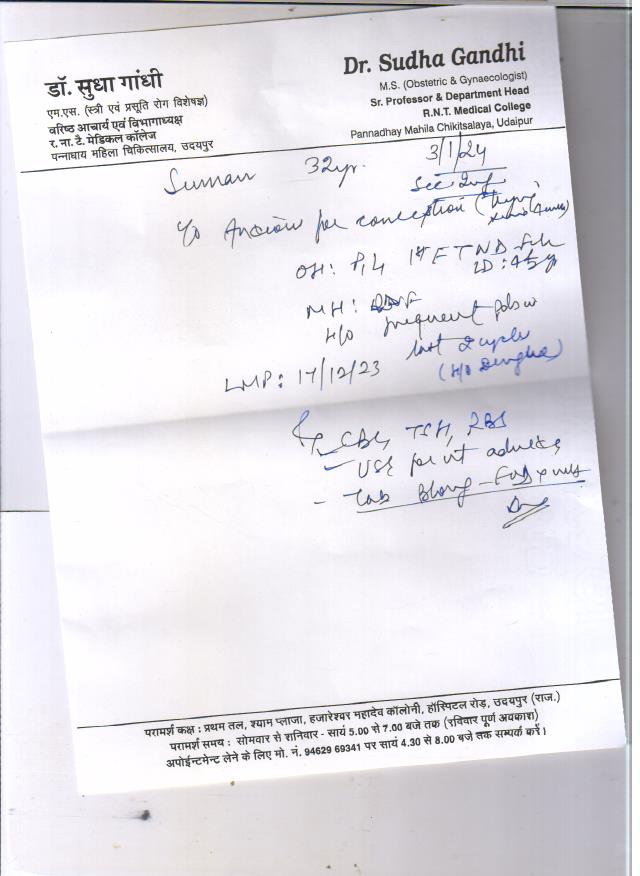 डॉ. सुधा गांधी
एम.एस. (स्त्री एवं प्रसूति रोग विशेषज्ञ)
वरिष्ठ आचार्य एवं विभागाध्यक्ष
र. ना. टै. मेडिकल कॉलेज
पन्नाधाय महिला चिकित्सालय, उदयपुर
Dr. Sudha Gandhi
M.S. (Obstetric & Gynaecologist)
Sr. Professor & Department Head
R.N.T. Medical College
Pannadhay Mahila Chikitsalaya, Udaipur
Suman 32yr. 3/1/24
See Inf
c/o Anxious for conception
OH: P1L1 1st FTND
LD: 4½y
MH:
H/O frequent
last 2 cycle
LMP: 17/12/23 (H/O Dengue)
CBC, TSH, RBS
- USG
- Tab
परामर्श कक्ष : प्रथम तल, श्याम प्लाजा, हजारेश्वर महादेव कॉलोनी, हॉस्पिटल रोड़, उदयपुर (राज.)
परामर्श समय : सोमवार से शनिवार - सायं 5.00 से 7.00 बजे तक (रविवार पूर्ण अवकाश)
अपोईन्टमेन्ट लेने के लिए मो. नं. 94629 69341 पर सायं 4.30 से 8.00 बजे तक सम्पर्क करें।